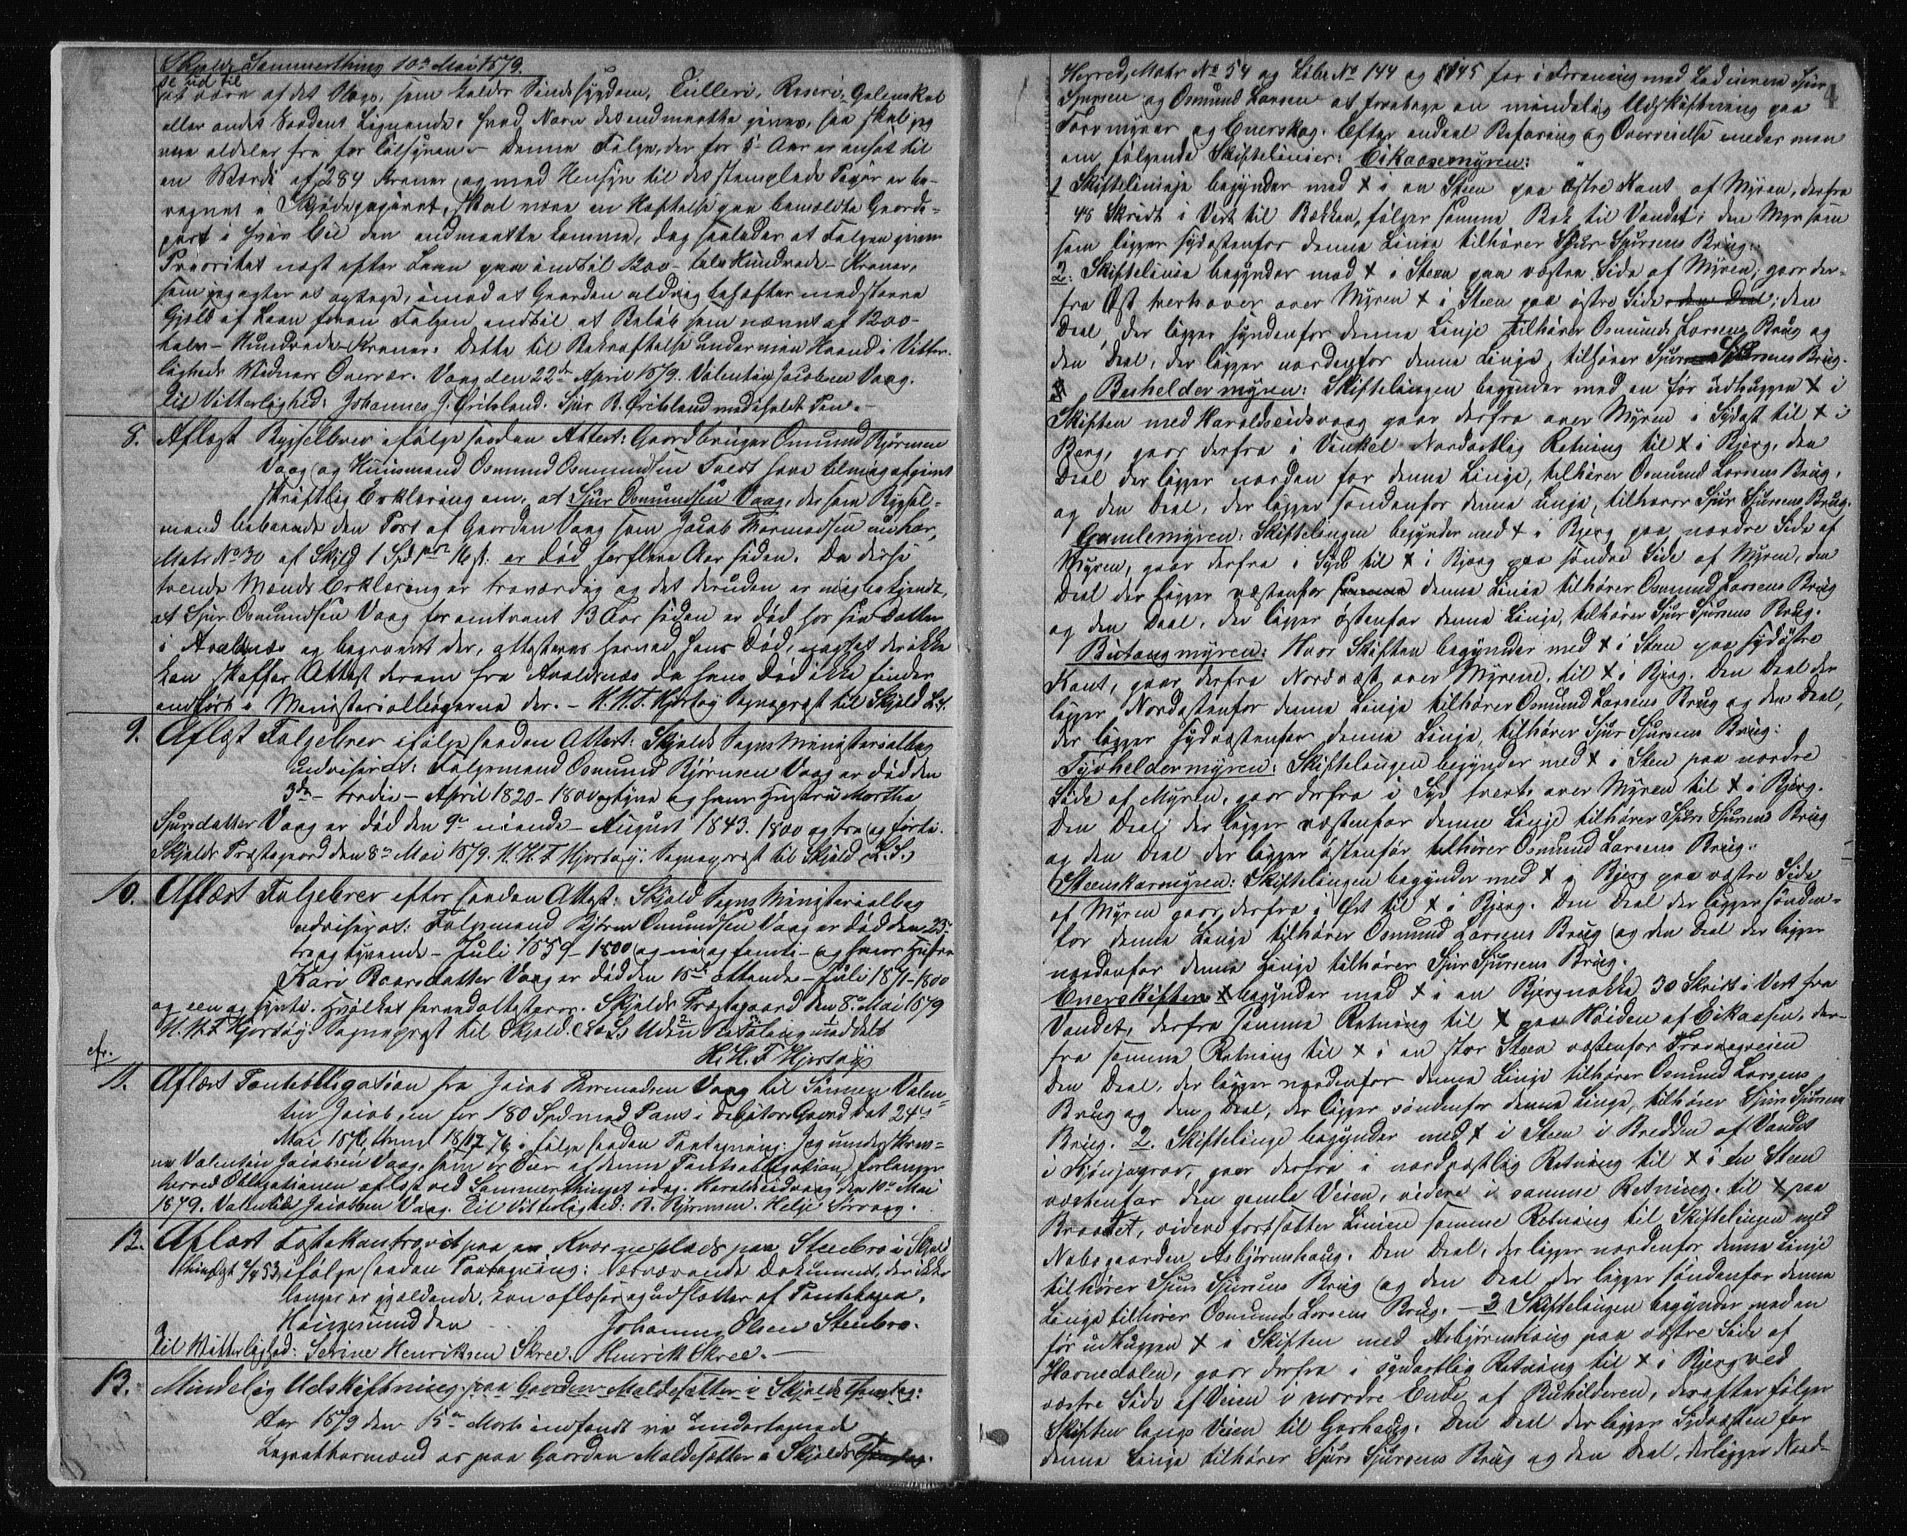 Skjolds Sommerthing 10de Mai 1879.
se ud til
at være af det Slags, som kaldes Sindssygdom, Tulleri, Raseri, Galenskab
eller andet Saadant Lignende. hvad Navn det end maatte gives, saa skal jeg
være aldeles fri for tilsynen. Denne Følge, der for 5 Aar er ansat til
en Værdi af 284 Kroner og med Hensyn til det stemplede Papir er be-
regnet i Skjødepapiret, skal være en Hæftelse paa bemeldte Gaarde-
part i hvis Eie den end maatte komme, dog saaledes at Følgen gives
Prioritet næst efter Laan paa indtil 1200 - tolv Hundrede - Kroner,
som jeg agter at optage, imod at Gaarden aldrig behæftes med større
Gjæld af Laan foran Følgen end til et Beløb som nævnt af 1200 -
tolv - Hundrede - Kroner. Dette til Bekræftelse under min Haand i Vitter-
ligheds Vidners Overvær. Vaag den 22de April 1879. Valentin Jacobsen Vaag.
Til Vitterlighed: Johannes J. Østbsland. Sjur B. Østbsland med iholdt Pen.
8. Aflæst Bygselbrev ifølge saadan Attest: Gaardbruger Osmund Bjørnsen
Vaag og Huusmand Osmund Osmundsen Tvedt have til mig afgivet
skriftlig Erklæring om, at Sjur Osmundsen Vaag, der som Bygsel-
mand beboede den Part af Gaarden Vaag som Jacob Tormodsen nu har,
Matr No 30 af Skyld 1 Spd 16 st. er død for flere Aar siden. Da disse
tvende Mænds Erklæring er troværdig og det desuden er mig bekjendt,
at Sjur Osmundsen Vaag for omtrent 13 Aar siden er død hos sin Datter
i Avaldsnæs og begravet der, attesteres herved hans Død, uagtet der ikke
kan skaffes Attest derom fra Avaldsnæs da hans Død ikke findes
anført i Ministerialbøgerne der. - H. H. F. Hjortøy Sognepræst til Skjold L.S.
9. Aflæst Følgebrev ifølge saadan Attest: Skjolds Sogns Ministerialbog
udviser at: Følgemand Osmund Bjørnsen Vaag er død den
3die - tredie - April 1820 - 1800 og tyve og hans Hustru Martha
Sjursdatter Vaag er død den 9de niende - August 1843. 1800 og tre og førti.
Skjolds Præstegaard den 8de Mai 1879. H. H. F. Hjortøy. Sognepræst til Skjold (L.S.)
10. Aflæst Følgebrev efter saadan Attest: Skjold Sogns Ministerialbog
udviser at: Følgemand Bjørn Osmundsen Vaag er død den 23de
tre og tyvende - Juli 1859 - 1800 og ni og femti - og hans Hustru
Kari Roarsdatter Vaag er død den 18de attende - Juli 1871 - 1800
og een og sytti. Hvilket herved attesteres. Skjolds Præstegaard den 8de Mai 1879
H. H. F. Hjortøy. Sognepræst til Skjold. (L.S.) Uden Betaling meddelt
H. H. F. Hjortøy
cfr.
11. Aflæst Panteobligation fra Jacob Tormodsen Vaag til Sønnen Valen-
tin Jacobsen for 180 Spd med Pant i debitors Gaard dat 24de
Mai 1876, thingl 18/12 76 ifølge saadan Paategning: Jeg underskrev-
ne Valentin Jacobsen Vaag som er Eier af denne Panteobligation, forlanger
herved Obligationen aflæst ved Sommerthinget idag. Haraldseidvaag den 10de Mai
1879. Valentin Jacobsen Vaag. Til Vitterlighed: B. Bjørnsen. Helje Sørvaag.
12. Aflæst Fæstekontrakt paa en Kværneplads paa Stenbro i Skjold
thinglyst 2/4 53, ifølge saadan Paategning: Nærværende Dokument, der ikke
længer er gjældende, kan aflæses og udslættes af Pantebogen.
Haugesund den Johannes Olsen Stenbro.
Til Vitterlighed: Serine Henriksen Skree. Henrik Skree. -
13. Mindelig Udskiftning paa Gaarden Maldesætter i Skjolds Thinglag:
Aar 1879 den 15de Marts indfandt vi undertegnede
Lagrettesmænd os paa Gaarden Maldesætter i Skjolds Thinglag.
4
Herred, Matr No 54 og Løbe No 144 og 145 for i Forening med Lodeierne Sjur
Sjursen og Osmund Larsen at foretage en mindelig Udskiftning paa
Torvmyrer og Enerskog. Efter endeel Befaring og Overveielse enedes man
om følgende Skiftelinier: Eikaasemyren:
1 Skiftelinie begynder med X i en Steen paa østre Kant af Myren, derfra
48 Skridt i Vest til Bækken, følger samme Bæk til Vandet; den Myr som
som ligger sydostenfor denne Linie tilhører Sjur Sjursens Brug.
2. Skiftelinie begynder med X i Steen paa vestre Side af Myren, gaar der-
fra Øst tverhover over Myren X i Steen paa østre Side den Deel; den
Deel, der ligger syndenfor denne Linje tilhører Osmund Larsens Brug og
den Deel, der ligger nordenfor denne Linje, tilhører Sjur Sjursens Brug.
Beshelder myren: Skiftelingen begynder med en før udhuggen X i
Skiften med Haraldseidsvaag gaar derfra over Myren i Sydost til X i
Berg, gaar derfra i Vinkel Nordostlig Retning til X i Bjerg, den
Deel der ligger norden for denne Linje, tilhører Osmund Larsens Brug,
og den Deel, der ligger søndenfor denne Linje, tilhører Sjur Sjursens Brug.
Gamlemyren: Skiftelingen begynder med X i Bjerg paa nordre Side af
Myren, gaar derfra i Syd til X i Bjerg paa søndre Side af Myren, den
Deel der ligger vestenfor samme denne Linie tilhører Osmund Larsens Brug
og den Deel, der ligger østenfor denne Linje, tilhører Sjur Sjursens Brug.
Butangmyren: Hvor Skiften begynder med X i Steen paa sydøstre
Kant, gaar derfra Nordvest over Myrene, til X i Bjerg. Den Deel der
ligger Nordostenfor denne Linje tilhører Osmund Larsens Brug og den Deel,
der ligger sydvestenfor denne Linje, tilhører Sjur Sjursens Brug.
Tyvheldermyren: Skiftelingen begynder med X i Steen paa nordre
Side af Myren, gaar derfra i Syd tverts over Myren til X i Bjerg.
Den Deel der ligger vestenfor denne Linje tilhører Sjurs Sjursens Brug
og den Deel der ligger østenfor tilhører Osmund Larsens Brug.
Steenskarmyren: Skiftelingen begynder med X i Bjerg paa vestre Side
af Myren gaar derfra i Øst til X i Bjerg. Den Deel der ligger sønden-
for denne Linje tilhører Osmund Larsens Brug og den Deel der ligger
nordenfor denne Linje tilhører Sjur Sjursens Brug.
Enerskiften X begynder med X i en Bjergnokke 30 Skridt i Vest fra
Vandet, derfra samme Retning til X paa Høiden af Eikaasen, der-
fra samme Retning til X i en stor Steen vestenfor Fravægveien
Den Deel, der ligger nordenfor denne Linje tilhører Osmund Larsens
Brug og den Deel, der ligger søndenfor denne Linje, tilhører Sjur Sjursens
Brug. 2. Skiftelinje begynder med X i Steen i Bredden af Vandet
i Kjønjagrov, gaar derfra i nordvestlig Retning til X i en Steen
vestenfor den gamle Veien, videre i samme Retning til X paa
Braatet, videre fortsætter Linien samme Retning til Skiftelingen med
Nabogaarden Asbjørnshaug. Den Deel, der ligger nordenfor denne Linje
tilhører Sjurs Sjursens Brug og den Deel der ligger søndenfor denne
Linje tilhører Osmund Larsens Brug. - 3 Skiftelingen begynder med en
før udhuggen X i Skiften med Asbjørnshaug paa vestre Side af
Havnedalen, gaar derfra i sydostlig Retning til X i Bjerg ved
vestre Side af Veien i nordre Ende af Buhilderen, derefter følger
Skiften langs Veien til Garhaug. Den Deel der ligger Sydvesten for
denne Linje tilhører Sjurs Sjursens Brug og den Deel, der ligger Nord-